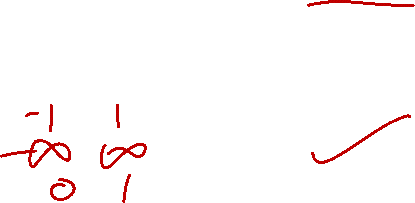 -1 1
-∞ ∞
0 1